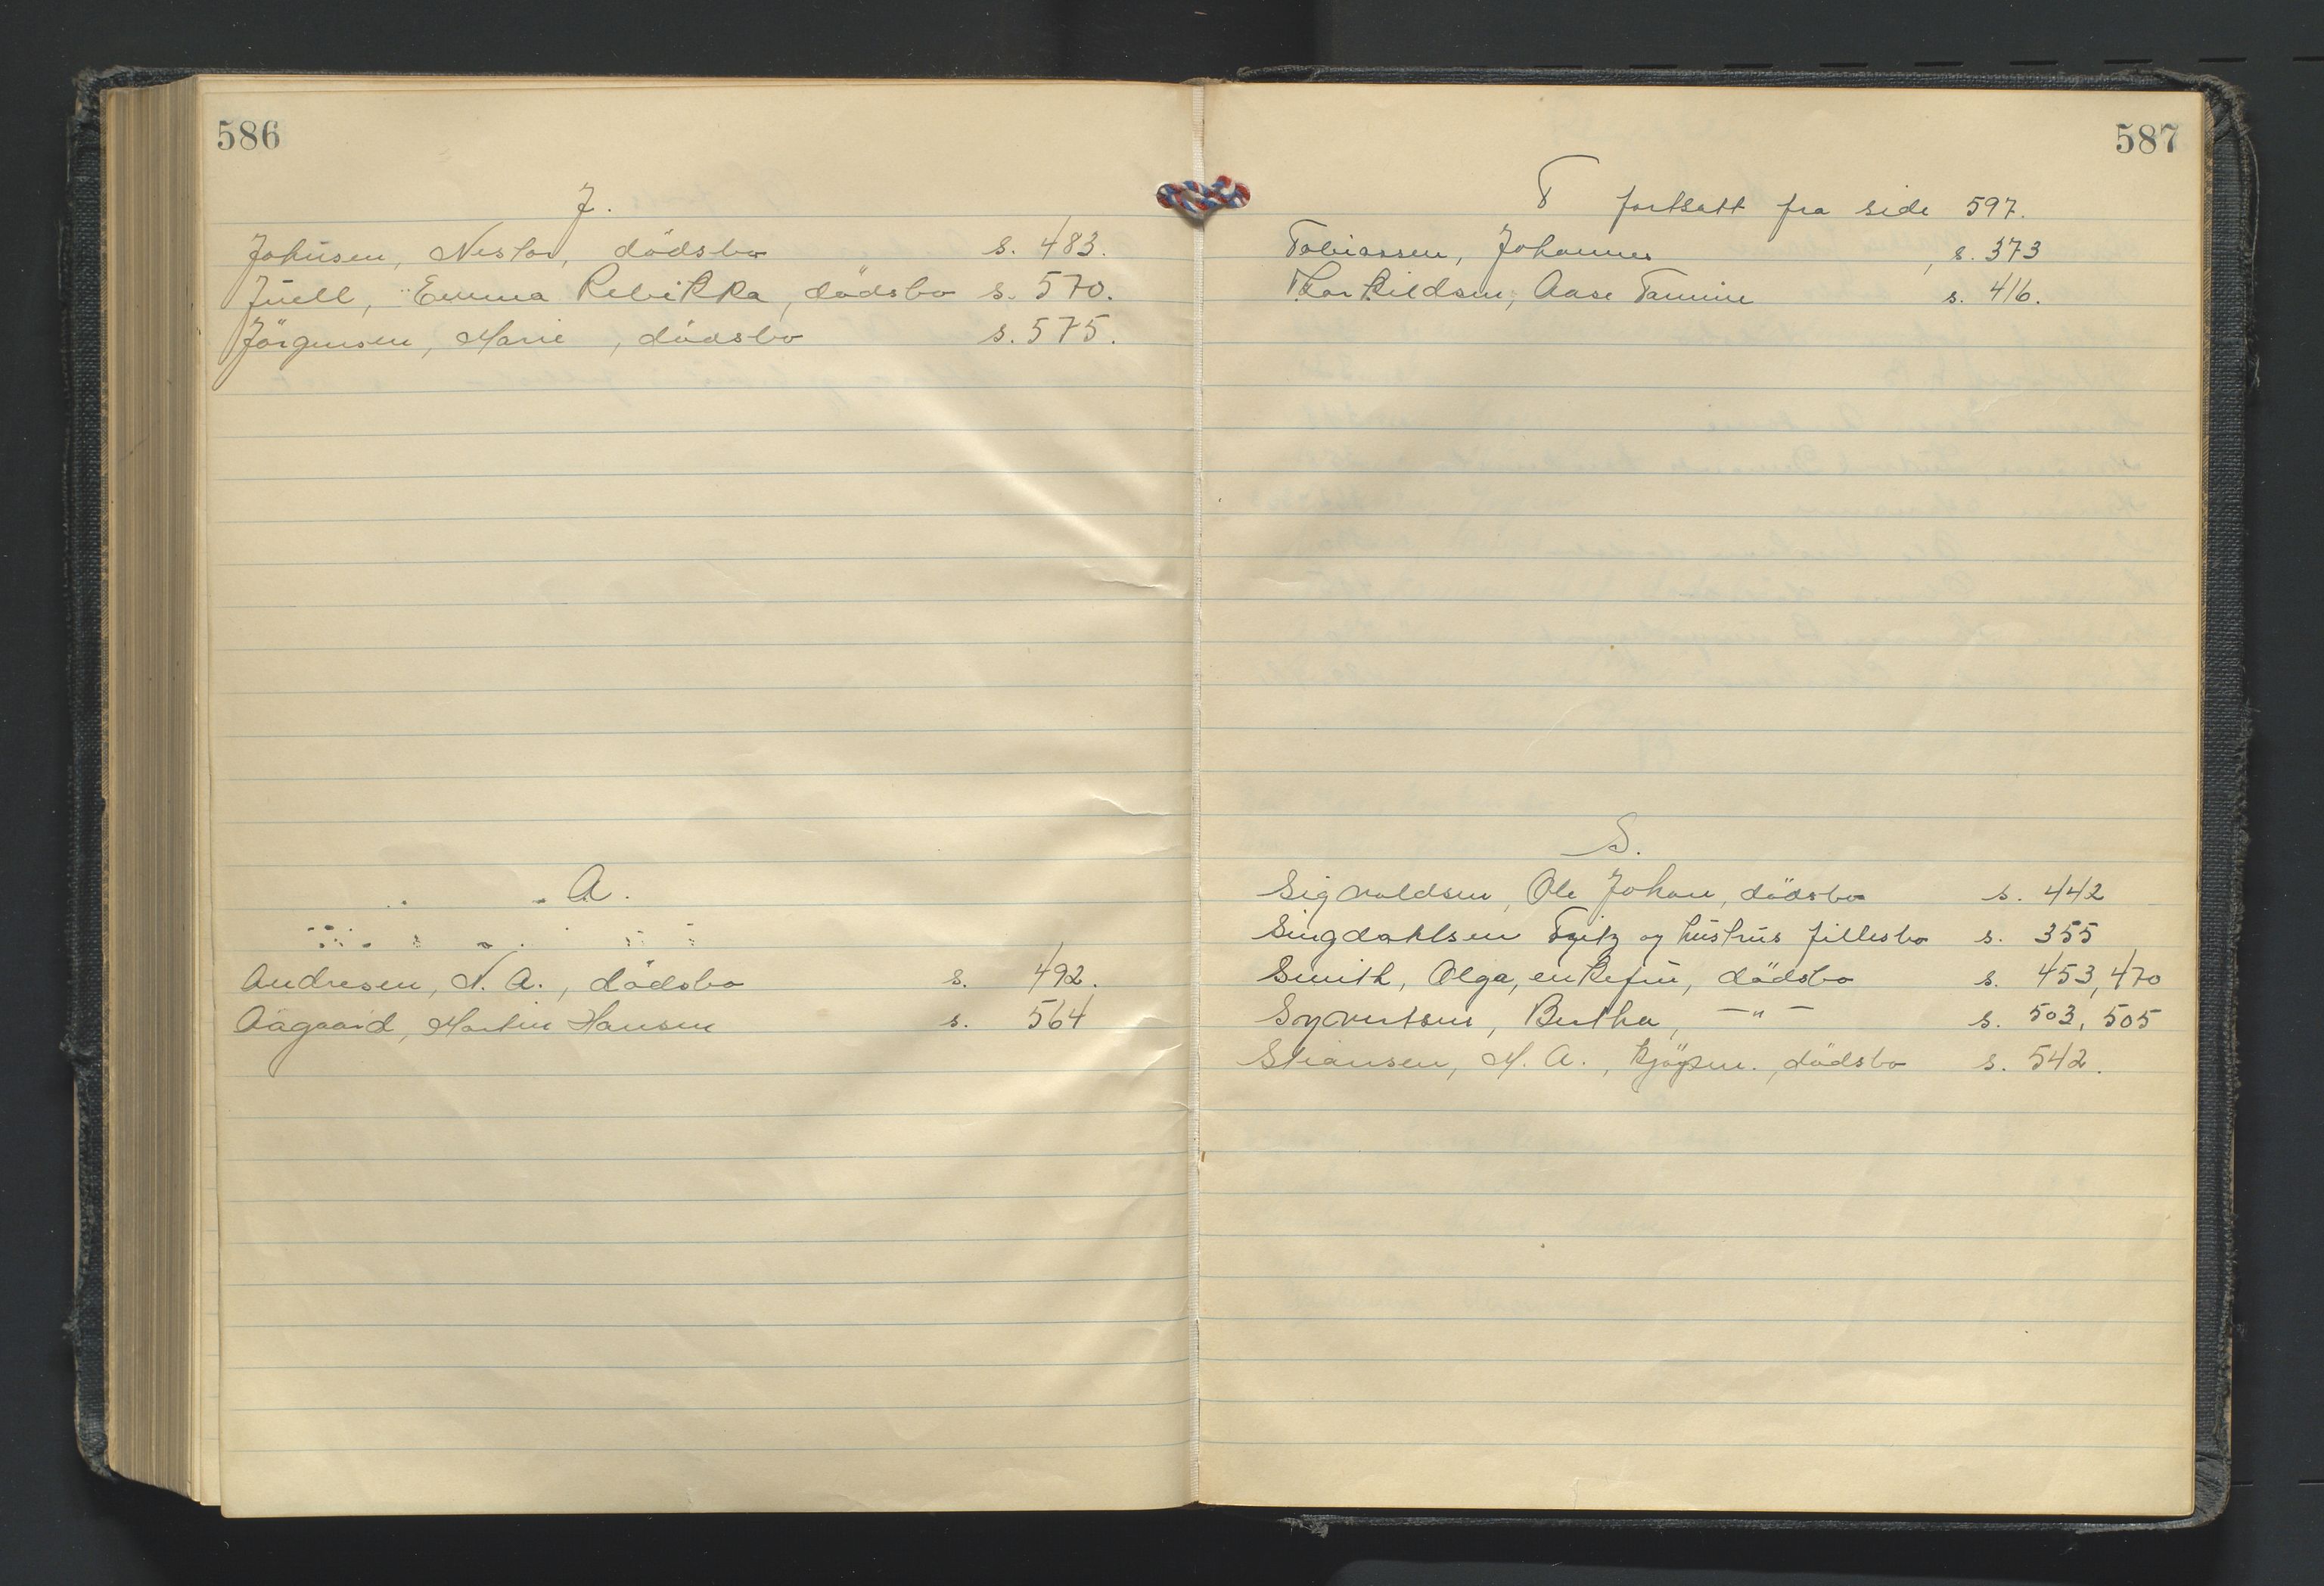 586
J.
Johnsen, Nestor, dödsbo s. 483.
Juell, Emma Rebikka, dödsbo s. 570.
Jörgensen, Marie, dödsbo s. 575.
A.
Andresen, N. A., dödsbo s. 492.
Aagaard, Martin Hansen s. 564
587
T fortsatt fra side 597.
Tobiassen, Johannes, s. 373
Thorkildsen, Aase Tamine s. 416.
S.
Sigvaldsen, Ole Johan, dödsbo s. 442
Singdahlsen Fritz og hustrus fellesbo s. 355
Smith, Olga, enkefru, dödsbo s. 453, 470
Syvertsen, Bertha, — " — s. 503, 505
Stiansen, M. A., kjöpm. dödsbo s. 542.